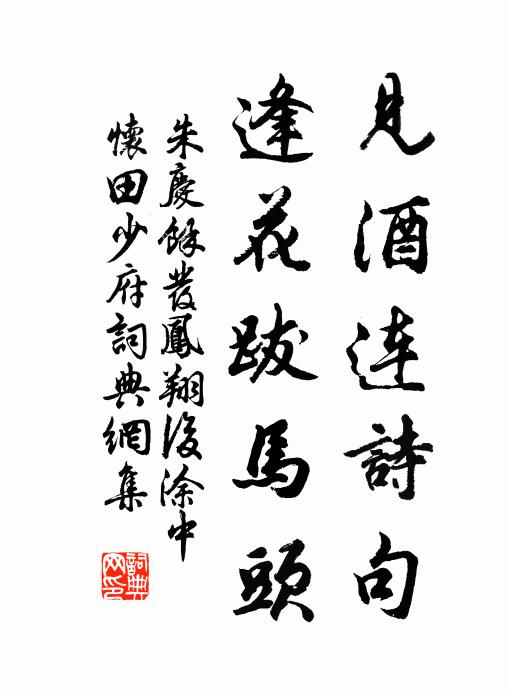 見酒连詩句
逢花跋馬頭
朱慶餘發鳳翔後涂中
懷田少府詞典網集
詞典
网印